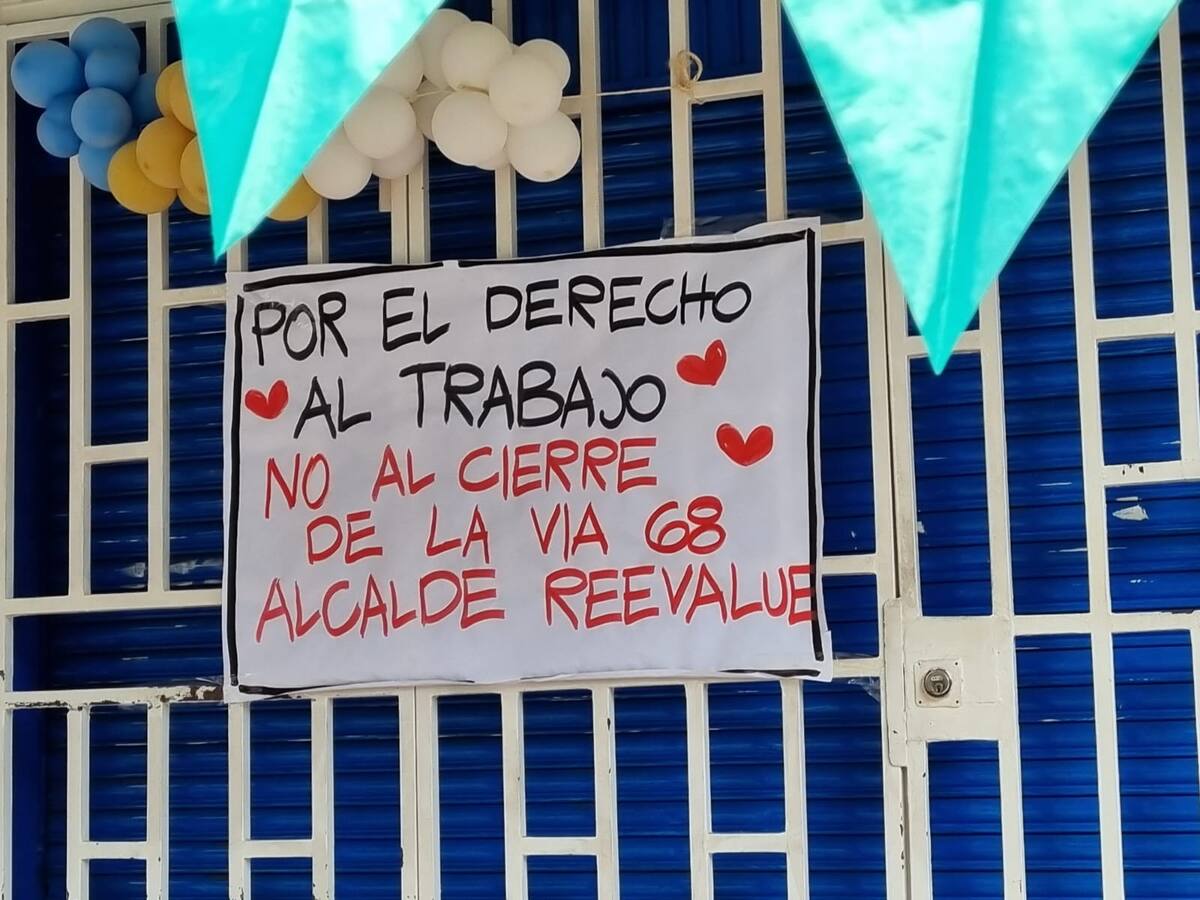 POR EL DERECHO
AL TRABAJO
NO AL CIERRE
DE LA VIA 68
ALCALDE REEVALUE